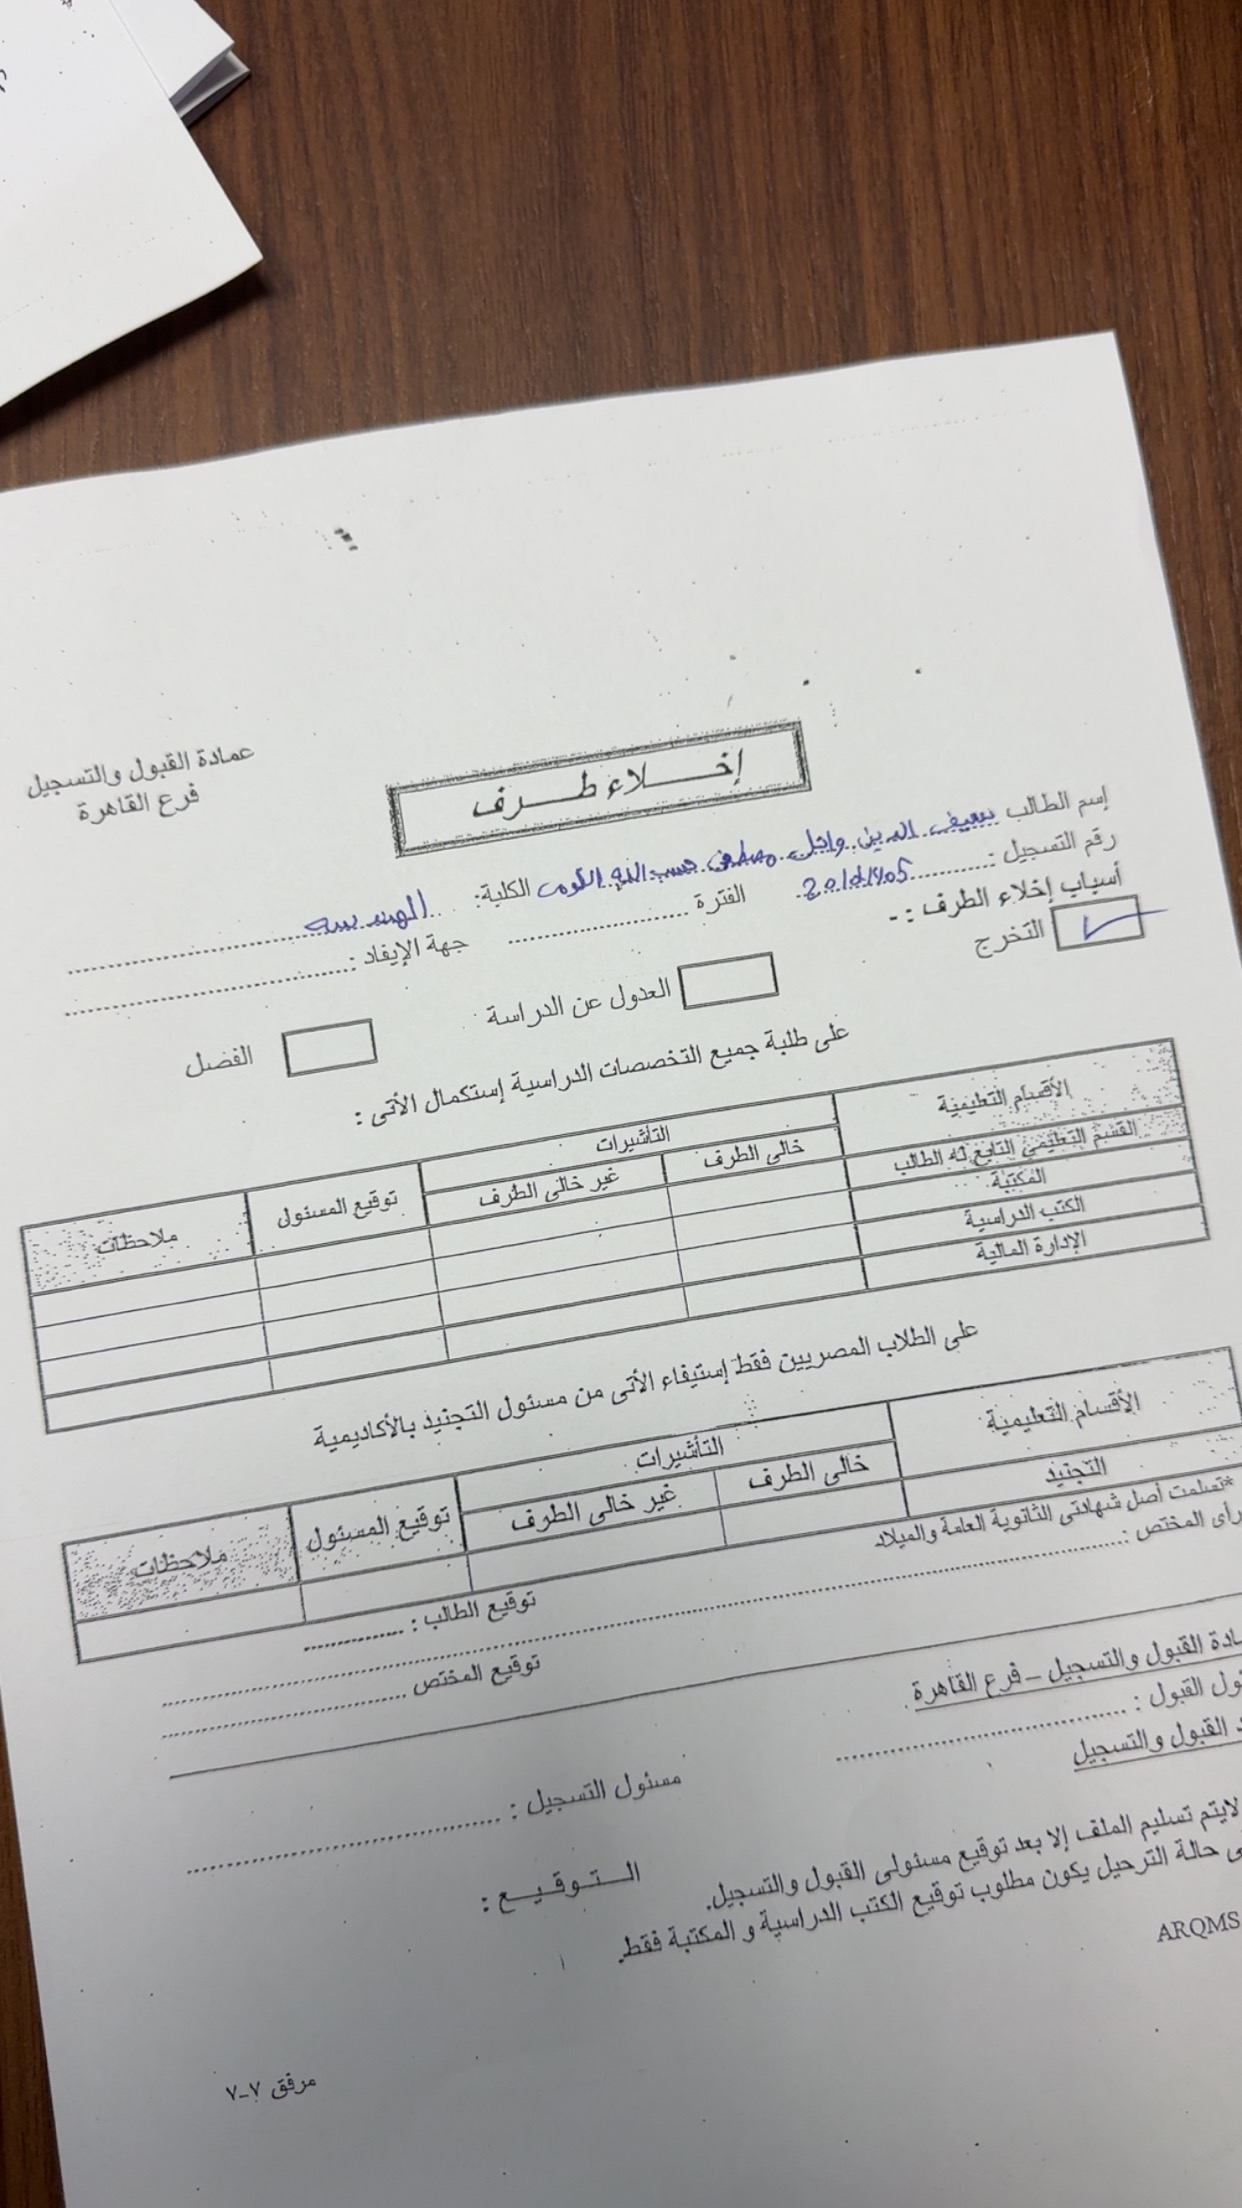 عمادة القبول والتسجيل
فرع القاهرة
إخــــلاء طــــرف
إسم الطالب سيف الدين وائل مصطفى حسب الله الكومى الكلية: الهندسه
رقم التسجيل : الفترة جهة الإيفاد :
أسباب إخلاء الطرف : -
التخرج
العدول عن الدراسة
الفضل
على طلبة جميع التخصصات الدراسية إستكمال الأتى :
الأقسام التعليمية التأشيرات توقيع المسئول ملاحظات
خالى الطرف غير خالى الطرف
القسم التعليمى التابع له الطالب
المكتبة
الكتب الدراسية
الإدارة المالية
على الطلاب المصريين فقط إستيفاء الأتى من مسئول التجنيد بالأكاديمية
الأقسام التعليمية التأشيرات توقيع المسئول ملاحظات
خالى الطرف غير خالى الطرف
التجنيد
*تسلمت أصل شهادتى الثانوية العامة والميلاد توقيع الطالب :
رأى المختص :
توقيع المختص
القبول والتسجيل – فرع القاهرة
القبول : مسئول التسجيل :
القبول والتسجيل
التــوقــيــع :
لايتم تسليم الملف إلا بعد توقيع مسئولى القبول والتسجيل.
حالة الترحيل يكون مطلوب توقيع الكتب الدراسية و المكتبة فقط.
ARQMS
مرفق ٧-٧